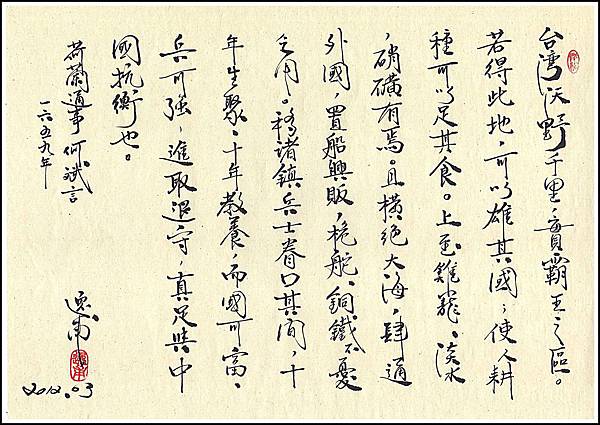 台湾沃野千里，實霸王之區。
若得此地，可以雄其國；使人耕
種可以足其食。上至雞籠、淡水
，硝磺有焉。且橫絕大海，肆通
外國，置船興販，桅舵、銅鐵不憂
乏用。移諸鎮兵士眷口其間，十
年生聚、十年教養，而國可富、
兵可強，進取退守，真足與中
國抗衡也。
荷蘭通事何斌言
一六五九年
2012.03